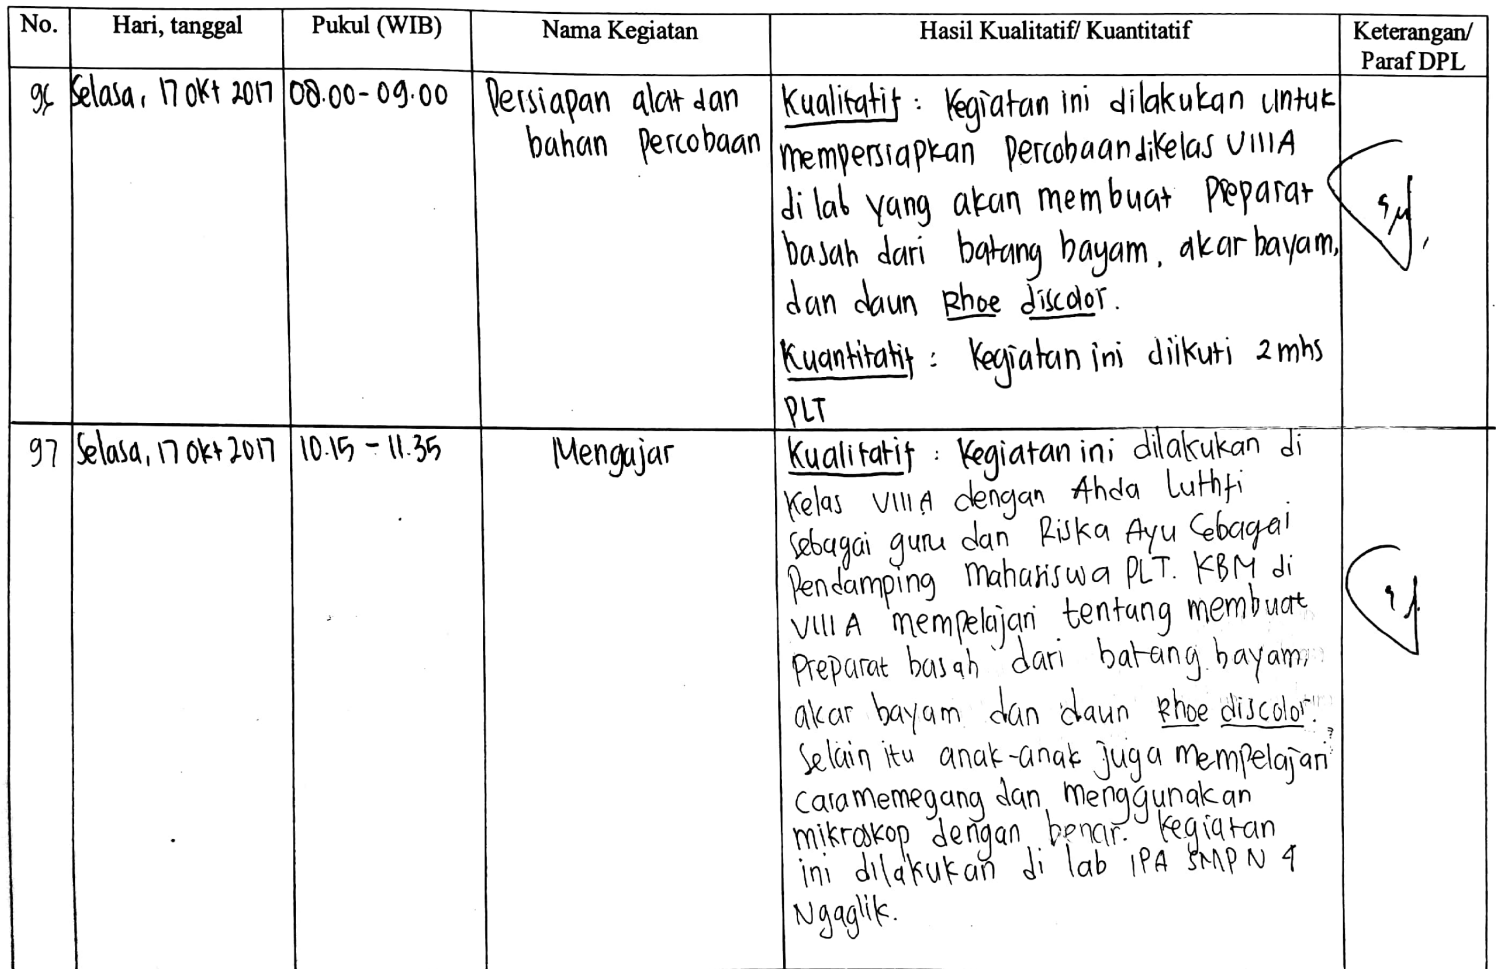 No. Hari, tanggal Pukul (WIB) Nama Kegiatan Hasil Kualitatif/ Kuantitatif Keterangan/
Paraf DPL
96 Selasa, 17 Okt 2017 08.00 - 09.00 Persiapan alat dan
bahan Percobaan
Kualitatif : Kegiatan ini dilakukan untuk
mempersiapkan percobaan dikelas VIIIA
di lab yang akan membuat Preparat
basah dari batang bayam, akar bayam,
dan daun Rhoe discolor.
Kuantitatif : Kegiatan ini diikuti 2 mhs
PLT
97 Selasa, 17 Okt 2017 10.15 - 11.35 Mengajar
Kualitatif : Kegiatan ini dilakukan di
Kelas VIII A dengan Ahda Luthfi
sebagai guru dan Riska Ayu Sebagai
Pendamping Mahasiswa PLT. KBM di
VIII A mempelajari tentang membuat
Preparat basah dari batang bayam,
akar bayam dan daun Rhoe discolor.
Selain itu anak-anak juga mempelajari
cara memegang dan menggunakan
mikroskop dengan benar. Kegiatan
ini dilakukan di lab IPA SMP N 4
Ngaglik.